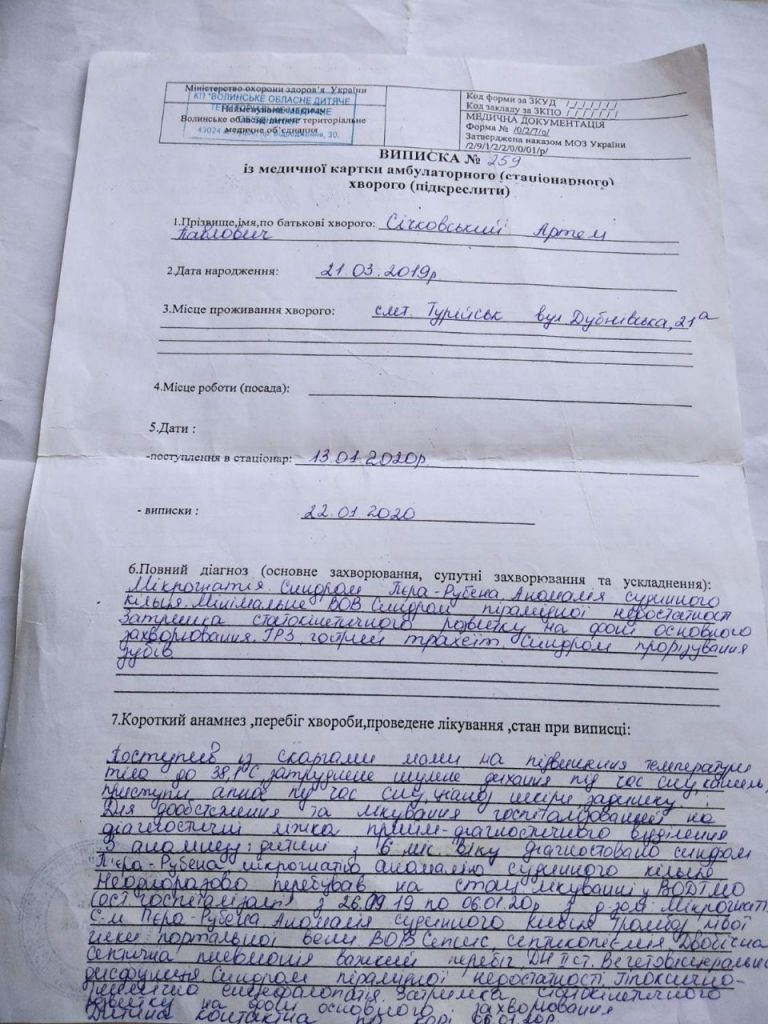 Міністерство охорони здоров'я України
КП "ВОЛИНСЬКЕ ОБЛАСНЕ ДИТЯЧЕ
ТЕРИТОРІАЛЬНЕ МЕДИЧНЕ
Найменування закладу
Волинське обласне дитяче територіальне
медичне об'єднання
43024 Відродження, 30.
Код форми за ЗКУД /_/_/_/_/_/_/
Код закладу за ЗКПО /_/_/_/_/_/_/
МЕДИЧНА ДОКУМЕНТАЦІЯ
Форма № /0/2/7/о/
Затверджена наказом МОЗ України
/2/9/1/2/2/0/0/01/р/
ВИПИСКА № 259
із медичної картки амбулаторного (стаціонарного)
хворого (підкреслити)
1.Прізвище,імя,по батькові хворого: Січковський Артем
Павлович
2.Дата народження: 21.03.2019р
3.Місце проживання хворого: смт. Турійськ вул Дубнівська, 21а
4.Місце роботи (посада):
5.Дати :
-поступлення в стаціонар: 13.01.2020р
- виписки : 22.01.2020
6.Повний діагноз (основне захворювання, супутні захворювання та ускладнення):
Мікрогнатія. Синдром Пєра-Рубена. Аномалія судинного
кільця. Мінімальне ВОВ Синдром пірамідної недостатності
Затримка статокінетичного розвитку на фоні основного
захворювання. ГРЗ, гострий трахеїт. Синдром прорізування
зубів
7.Короткий анамнез ,перебіг хвороби,проведене лікування ,стан при виписці:
Поступив із скаргами мами на підвищення температури
тіла до 38,1°С, затруднене шумне дихання під час сну, кашель,
приступи апное під час сну,
Для дообстеження та лікування госпіталізований на
діагностичні ліжка прийм-діагностичного відділення
З анамнезу: дитині з 6 міс віку діагностовано синдром
П'єра-Рубена, мікрогнатію, аномалію судинного кільця
Неодноразово перебував на стац лікуванні у ВОДТМО
(ост госпіталізація з 26.09 19 по 06.01.20р з д-зом: Мікрогнатія
С-м Пєра-Рубена Аномалія судинного кільця Тромбоз лівої
гілки портальної вени ВОВ Сепсис, септикопіємія Двобічна
септична пневмонія важкий перебіг ДН ІІ ст. Вегетовісцеральна
дисфункція. Синдром пірамідної недостатності. Гіпоксично-
ішемічна енцефалопатія. Затримка статокінетичного
розвитку на фоні основного захворювання
Дитина контактна по корі 06.01.20р.